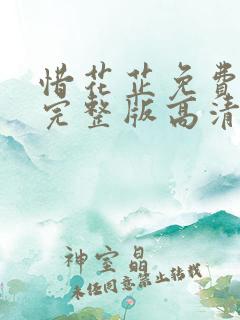 惜花芷免费
完整版高清
神室晶
未经同意禁止转载